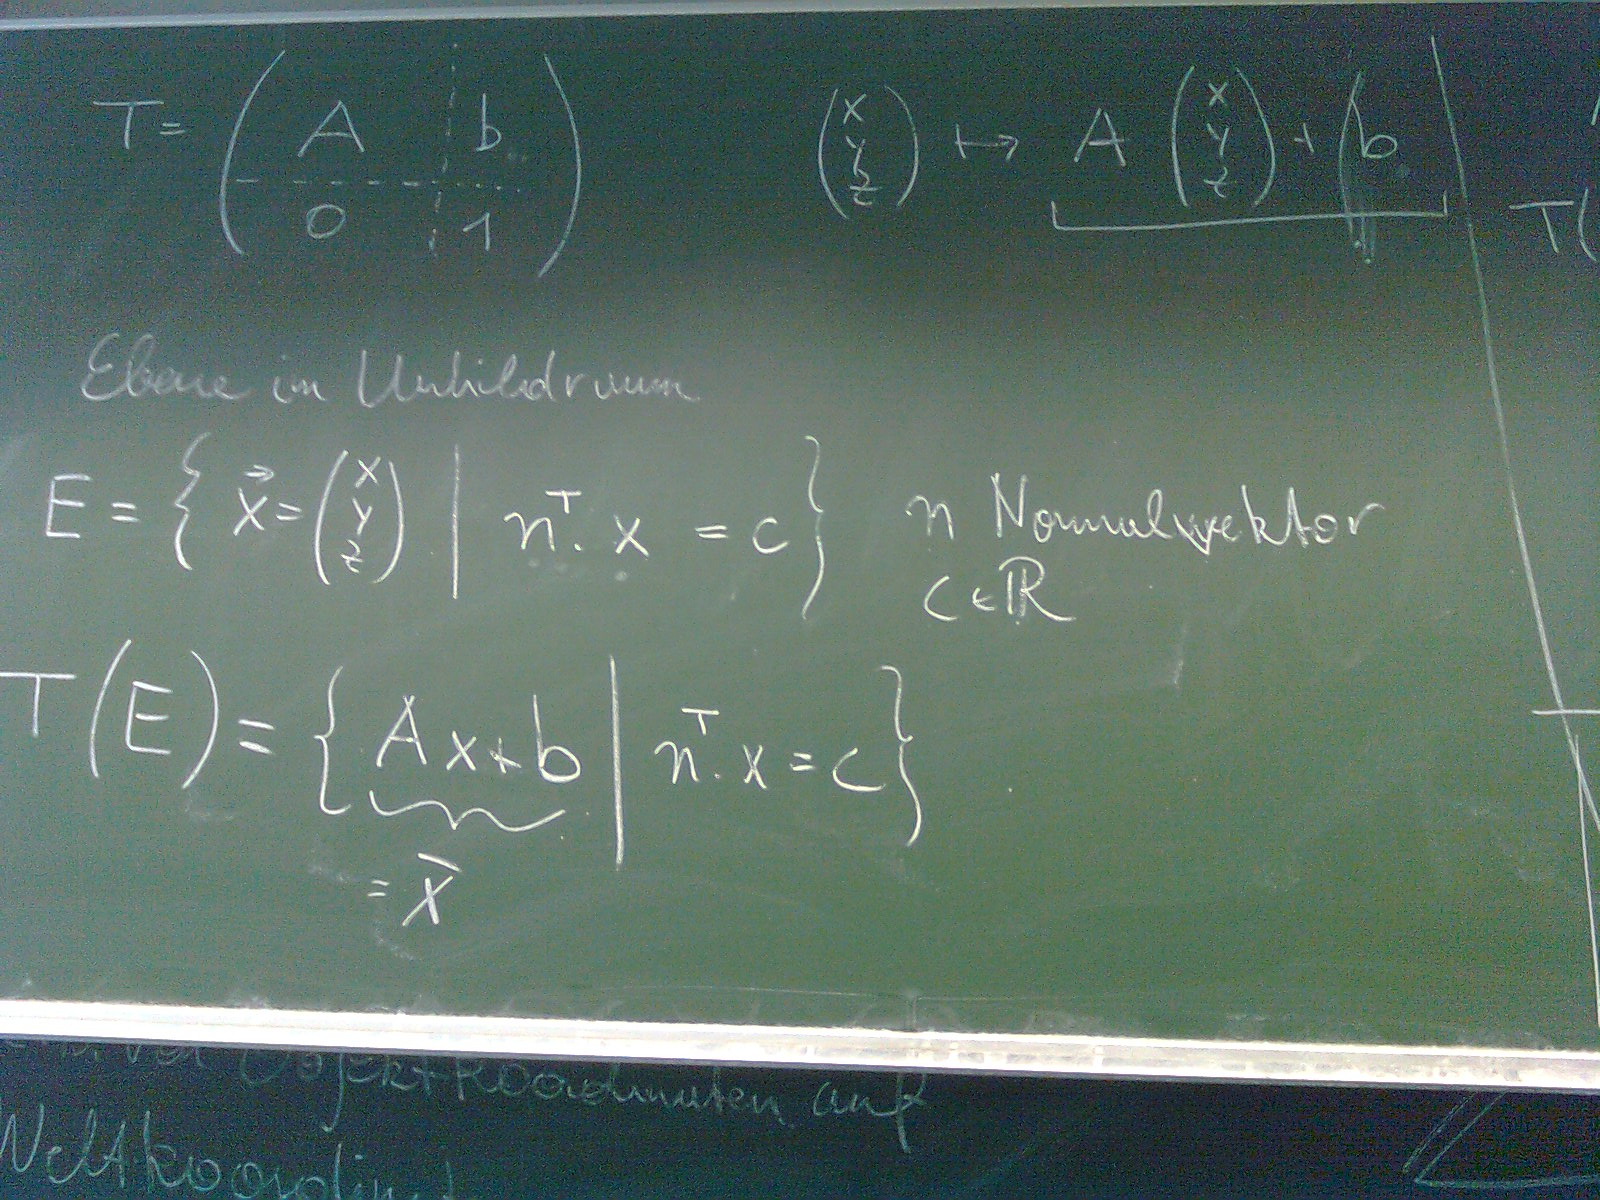 T = ( A b
0 1 )
( x y z ) ↦ A ( x y z ) + b
T(
Ebene im Urbildraum
E = { x⃗ = ( x y z ) | nᵀ · x = c } n Normalvektor
c ∈ ℝ
T(E) = { Ax+b | nᵀ · x = c }
= x̄
von Objektkoordinaten auf
Weltkoordinat